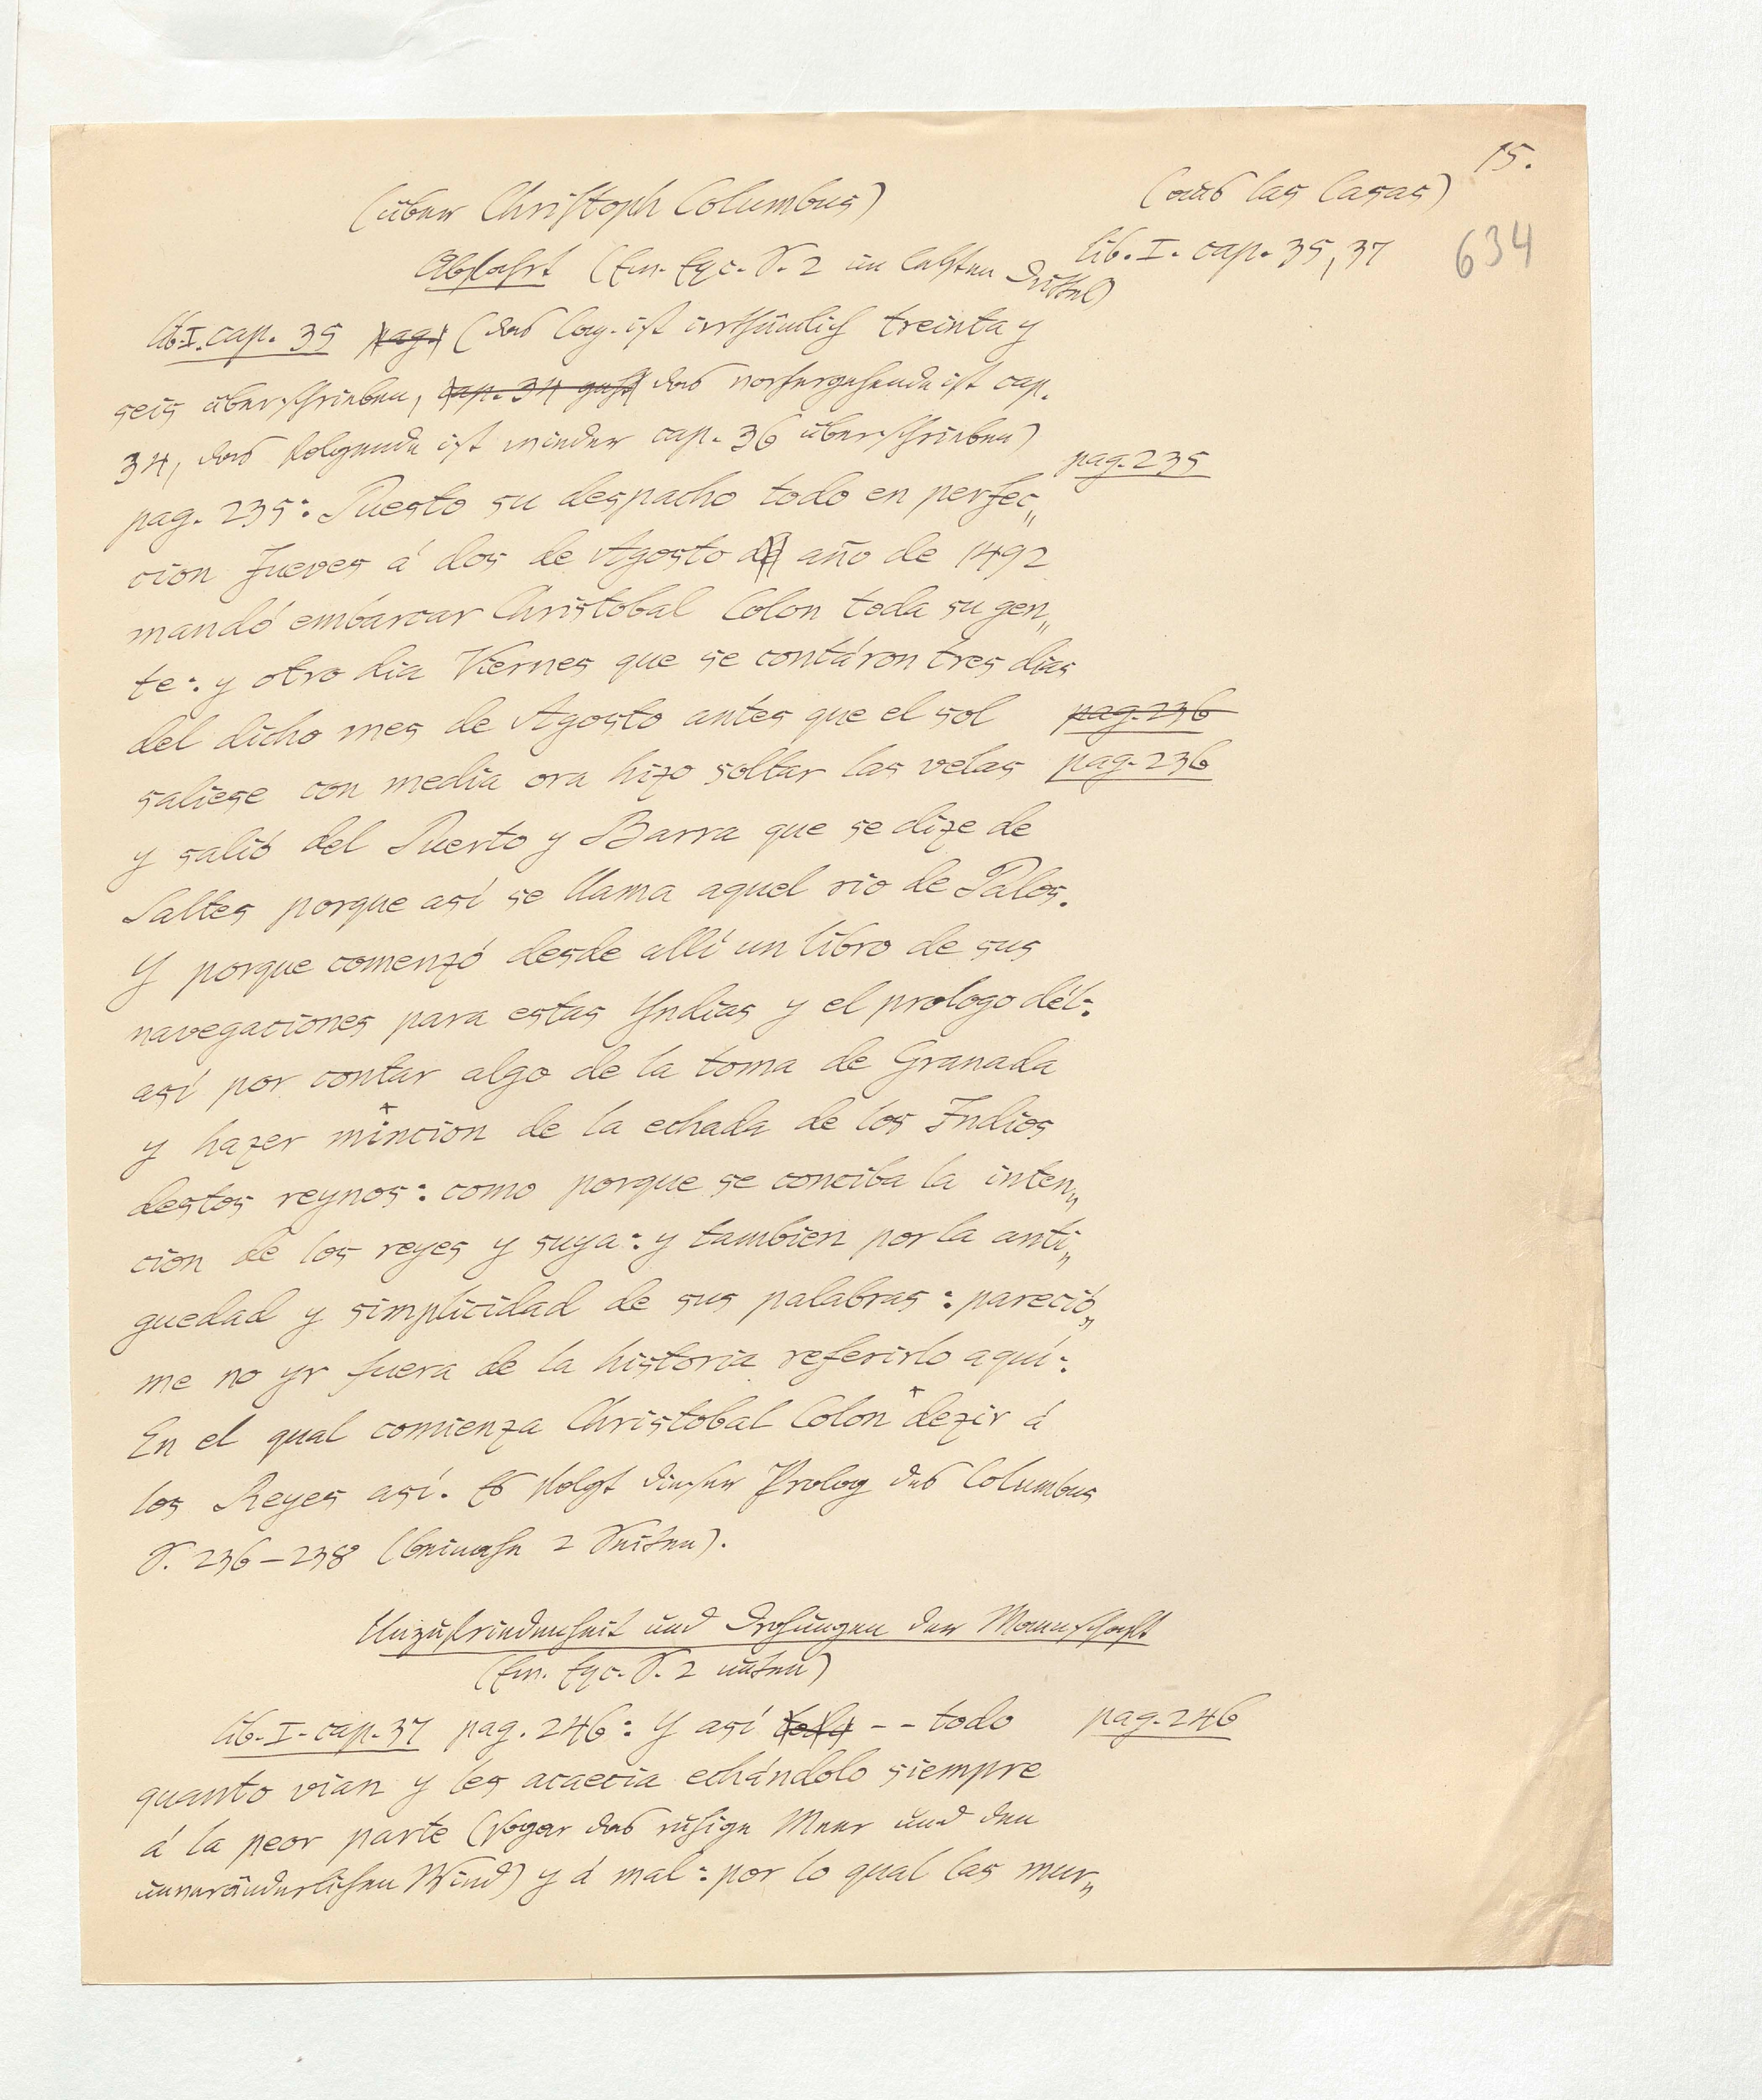 15.
(über Christoph Columbus) (aus las Casas)
634
Abfahrt (Em. Exc. S. 2 im letzten Drittel) lib. I. cap. 35, 37
lib. I. cap. 35 pag. (das Cap. ist irrthümlich treinta y
seis überschrieben, cap. 34 das vorhergehende ist cap.
34, das folgende ist wieder cap. 36 überschrieben)
pag. 235
pag. 235: Puesto su despacho todo en perfec„
cion Jueves á dos de Agosto año de 1492
mandó embarcar Christobal Colon toda su gen„
te: y otro dia Viernes que se contáron tres dias
del dicho mes de Agosto antes que el sol pag. 236
saliese con media ora hizo soltar las velas pag. 236
y salió del Puerto y Barra que se dize de
Saltes porque así se llama aquel rio de Palos.
Y porque comenzó desde allí un libro de sus
navegaciones para estas Yndias y el prologo dél:
así por contar algo de la toma de Granada
y hazer mincion de la echada de los Indios
destos reynos: como porque se conciba la inten„
cion de los reyes y suya: y tambien por la anti„
guedad y simplicidad de sus palabras: pareció„
me no yr fuera de la historia referirlo aquí:
En el qual comienza Christobal Colon dezir á
los Reyes así. Es folgt dieser Prolog des Columbus
S. 236–238 (beinahe 2 Seiten).
Unzufriedenheit und Drohungen der Mannschaft
(Em. Exc. S. 2 unten)
lib. I. cap. 37 pag. 246: Y así toda -- todo pag. 246
quanto vian y les acaecia echándolo siempre
á la peor parte (sogar das ruhige Meer und den
unveränderlichen Wind) y á mal: por lo qual las mur„